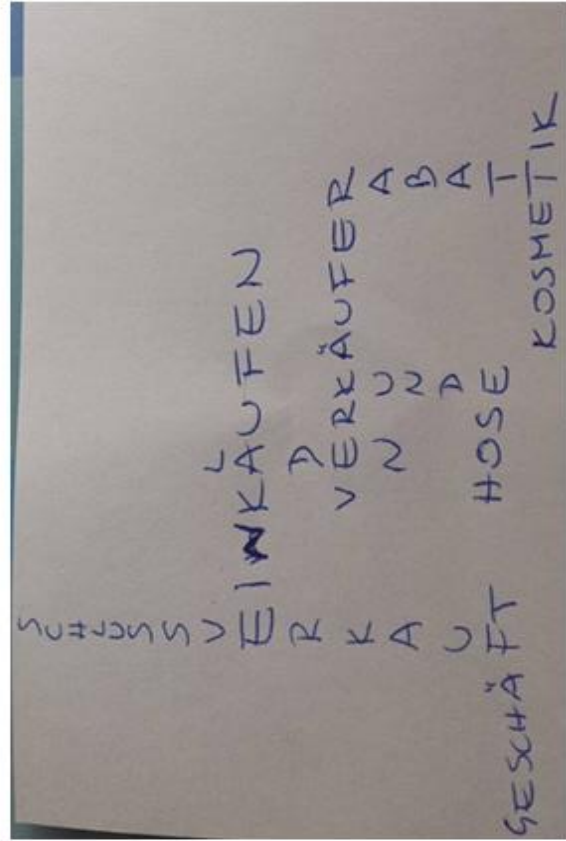 SCHLUSSVERKAUF
EINKAUFEN
LADEN
VERKÄUFER
KUNDE
RABATT
HOSE
GESCHÄFT
KOSMETIK